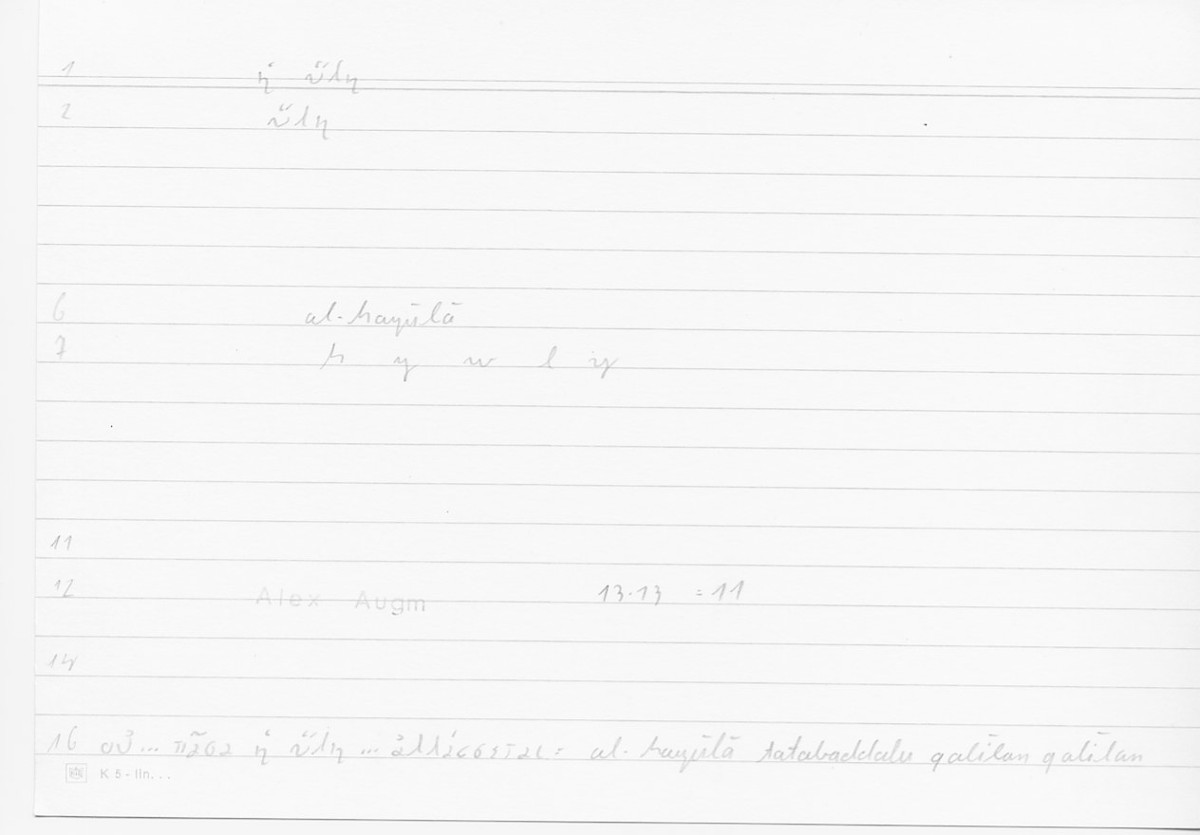 1 ἡ ὕλη
2 ὕλη
6 al-hayūlā
7 h y w l y
11
12 Alex Augm 13.13 = 11
14
16 οὐ ... πᾶσα ἡ ὕλη ... ἀλλάσσεται: al-hayūlā tatabaddalu qalīlan qalīlan
K 5 - lin...